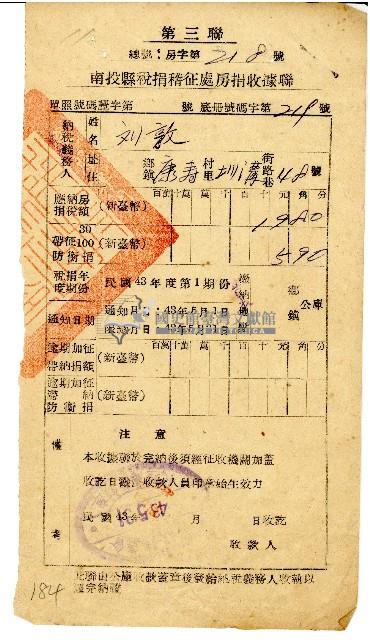 第三聯
總號:房字第 218 號
南投縣稅捐稽征處房捐收據聯
單照號碼護字第 號 底冊號碼字第 218 號
納稅義務人
姓名 劉敦
住址 鄉鎮 康壽 村里 圳溝 街路巷 48 號
應納房捐稅額 (新臺幣) 百十萬千百十元角分
1980
帶征30/100防衛捐 (新臺幣)
590
稅捐年度期份 民國43年度第1期份 繳納 鄉鎮 公庫
通知日期 通知日 43年5月1日
43年5月31日
逾期加征滯納捐額 (新臺幣) 百十萬千百十元角分
逾期加征滯納防衛捐 (新臺幣)
備考
注意
本收據聯於完納後須經征收機關加蓋
收訖日戳及收款人員印章始生效力
民國43年 月 日收訖
43.5.31
收款人
此聯由公庫收款蓋章後發給納稅義務人收執以
資完納證
184
國史館臺灣文獻館